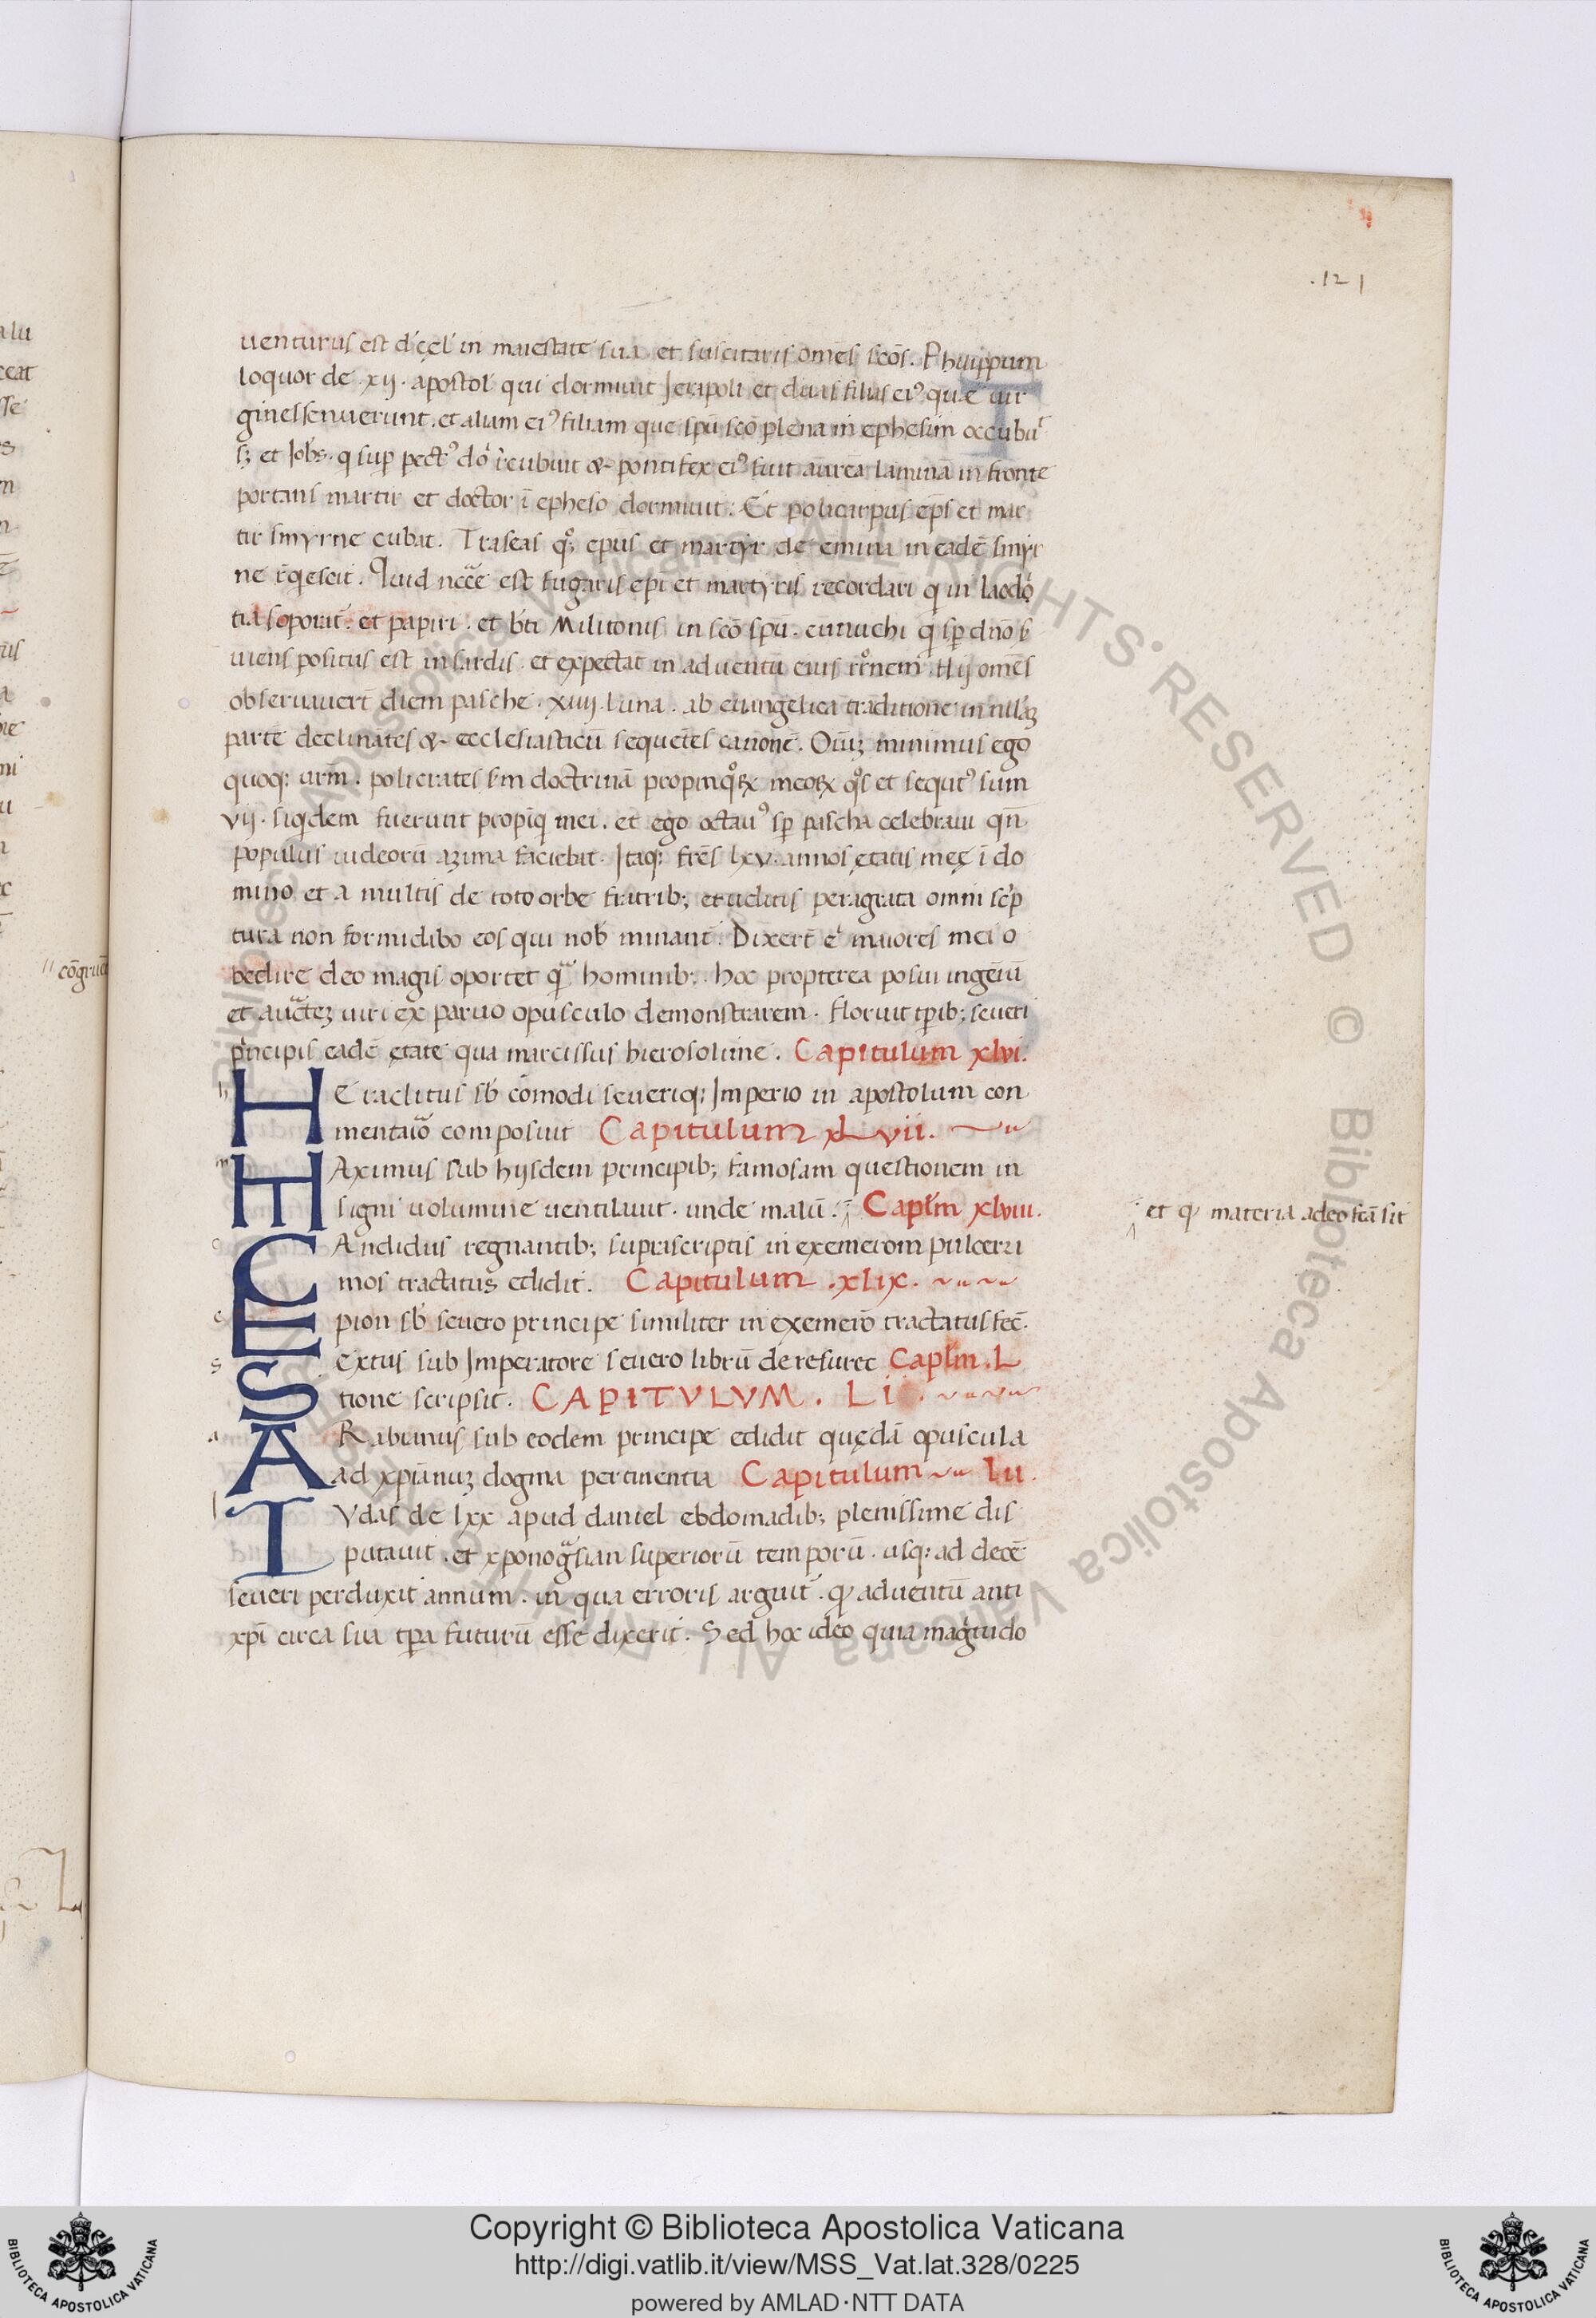 .121
uenturus est d' cęl' in maiestate sua. et suscitaris omēs scōs. Philippum
loquor de .xij. apostol' qui dormiuit Jeripoli et duas filias ei⁹ quę uir
gines senuerunt. et aliam ei⁹ filiam que spū scō plena in ephesim occubu
sꝫ et Johs. q sup pect⁹ dō rcubuit & pontifex ei⁹ fuit aurea laminā in fronte
portans martir et doctor ī epheso dormiuit. Et policarpus eps et mar
tir smyrne cubat. Traseas qꝫ epus et martyr de emina in eadē smyr
ne rqescit. Quid necē est sugaris epi et martyris recordari q in laodo
tia soporat. et papiri. et bti Militonis in scō spū. eunuchi q sp dno s
uiens positus est in sardis. et expectat in aduentu eius rrnem. Hij omēs
obseruauert diem pasche. xiiij. luna. ab euangelica traditione in nullaꝫ
parte declinātes & ecclesiasticū sequētes canonē. Oīuꝫ minimus ego
quoqꝫ urm. policrates sm doctrinā propinqꝝ meoꝝ qs et secut⁹ sum
vij. siqdem fuerunt propīq mei. et ego octau⁹ sp pascha celebraui qn
populus iudeorū azima faciebat. Itaqꝫ frēs lxv. annos ętatis meę ī do
mino et a multis de toto orbe fratribꝫ eruditis peragrata omni scrp
tura non formidabo eos qui nob minant. Dixert e maiores mei o
bedire deo magis oportet q hominibꝫ. hoc propterea posui ingeniū
et auctteꝫ uiri ex paruo opusculo demonstrarem. floruit tpibꝫ seueri
prncipis eadē ętate qua marcissus hierosolime. Capitulum xlvi.
h
H Eraclitus sb cōmodi seueriqꝫ Imperio in apostolum con
mentaio composuit Capitulum xLvii.
m
M Aximus sub hijsdem principibꝫ famosam questionem in
signi uolumine uentilauit. unde malū. Caplm xlviii.
et q materia a deo fcā sit
c
C Andidus regnantibꝫ suprascriptis in exemeron pulcerri
mos tractatus edidit. Capitulum .xlix.
e
E pion sb seuero principe similiter in exemerō tractatus fec.
s
S extus sub Imperatore seuero librū de resurec Caplm .L
tione scripsit. CAPITVLVM . Li.
a
A Rabianus sub eodem principe edidit quędā opuscula
ad xpianuꝫ dogma pertinentia Capitulum lii.
I
I Vdas de lxx apud daniel ebdomadibꝫ plenissime dis
putauit. et xponogsian superiorū temporū. usqꝫ ad decē
seueri perduxit annum. in qua erroris arguit. q aduentū anti
xpi circa sua tpa futurū esse dixerit. Sed hoc ideo quia magitudo
cōgruū
Copyright © Biblioteca Apostolica Vaticana
http://digi.vatlib.it/view/MSS_Vat.lat.328/0225
powered by AMLAD·NTT DATA
BIBLIOTECA APOSTOLICA VATICANA
BIBLIOTECA APOSTOLICA VATICANA